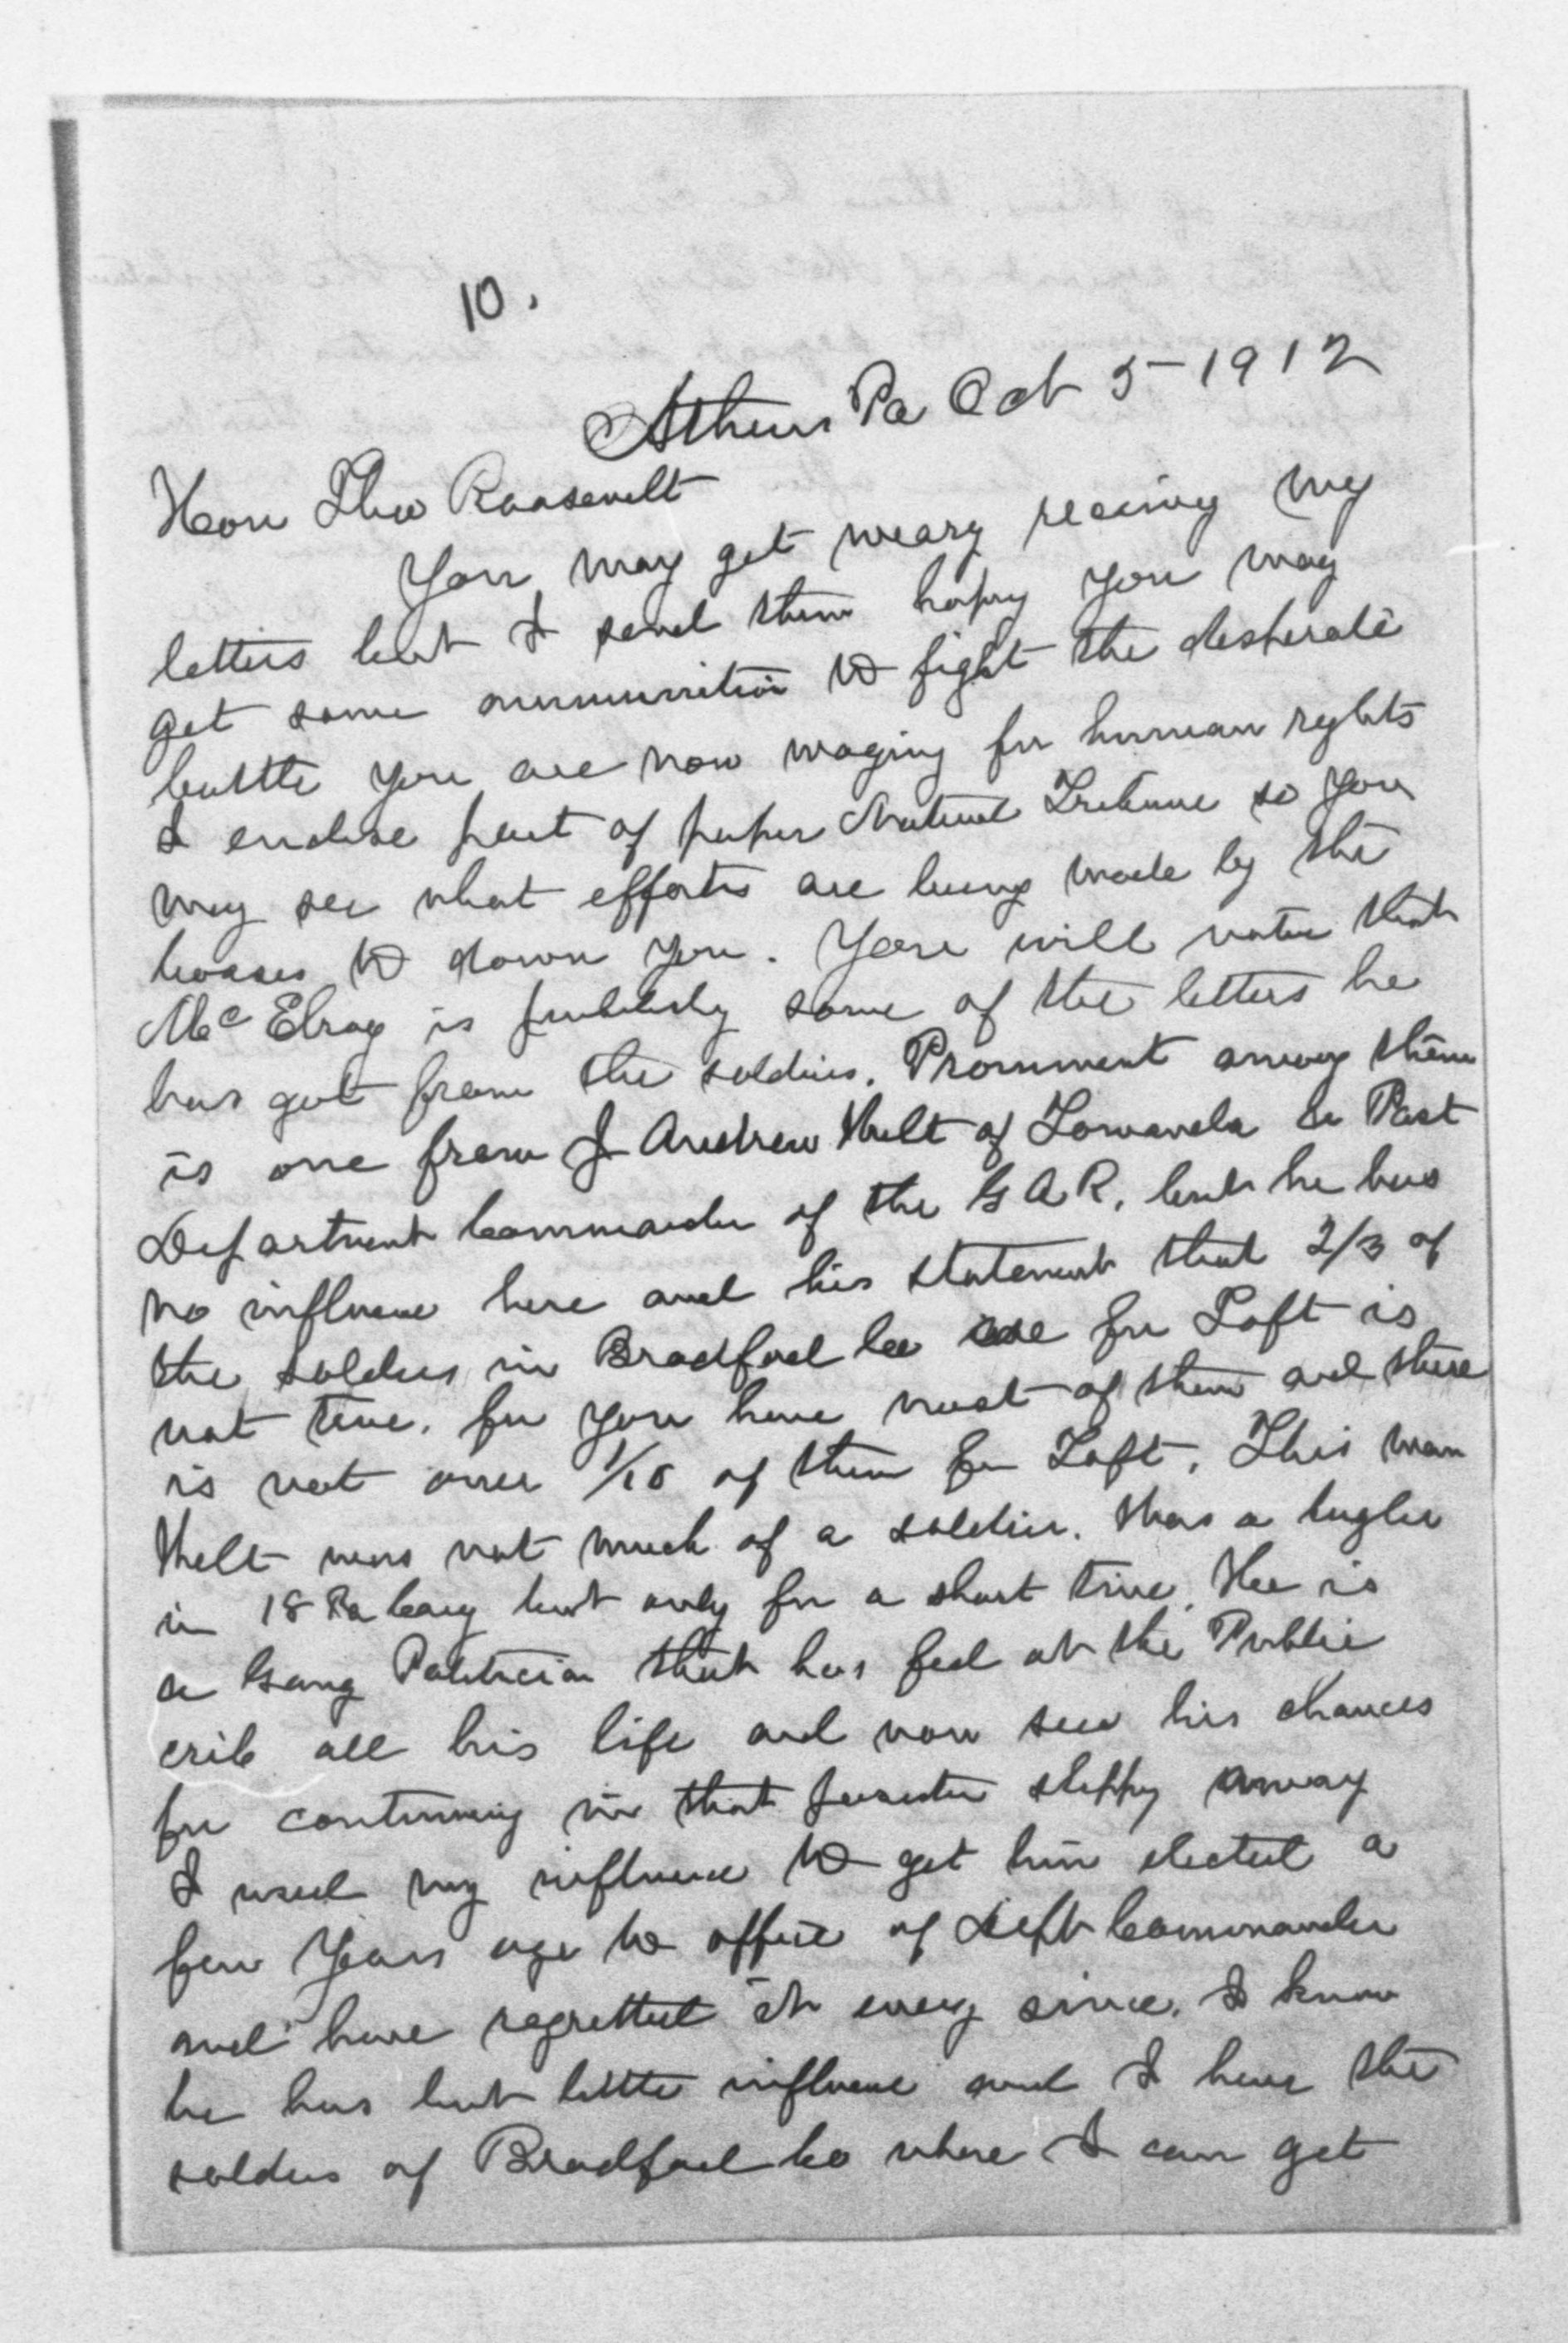 10.
Athens Pa Oct 5-1912
Hon Theo Roosevelt
You may get weary receivg my
letters but I send them hopeing you may
get some ammunition to fight the desperate
battle you are now waging for human rights
I enclose part of paper National Tribune so you
may see what efforts are being made by the
bosses to down you. You will notice that
McElroy is publishing some of the letters he
has got from the soldiers. Prominent among them
is one from J Andrew Wilt of Towanda a Past
Department Commander of the G A R. but he has
no influence here and his statement that 2/3 of
the soldiers in Bradford Co are for Taft is
not true. for you have most of them and there
is not over 1/10 of them for Taft. This man
Wilt was not much of a soldier. Was a bugler
in 18 Pa Cavy but only for a short time. He is
a Gang Politician that has fed at the Public
crib all his life and now sees his chances
for continuing in that position slipping away
I used my influence to get him elected a
few Years ago to office of Dept Commander
and have regretted it every since. I know
he has but little influence and I have the
soldiers of Bradford Co where I can get